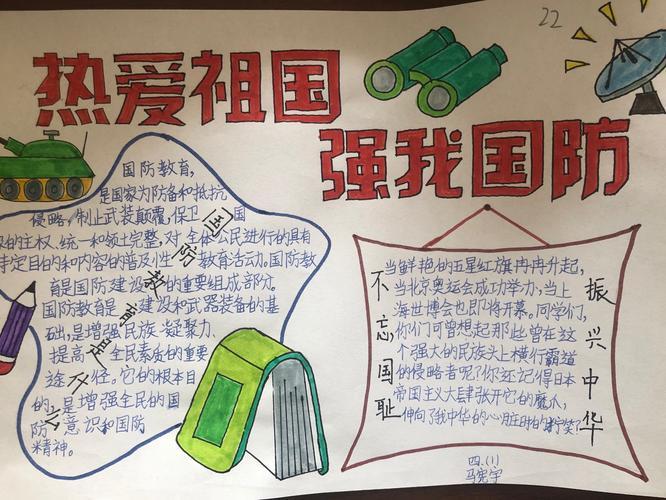 22
热爱祖国
强我国防
国防教育,
是国家为防备和抵抗
侵略,制止武装颠覆,保卫国
的主权、统一和领土完整,对全体公民进行的具有
特定目的和内容的普及性教育活动。国防教
育是国防建设的重要组成部分。
国防教育是建设和武器装备的基
础,是增强民族凝聚力、
提高全民素质的重要
途径。它的根本目
的,是增强全民的国
防意识和国防
精神。
国防教育是什么
不忘国耻
当鲜艳的五星红旗冉冉升起,
当北京奥运会成功举办,当上
海世博会也即将开幕。同学们,
你们可曾想起那些曾在这
个强大的民族头上横行霸道
的侵略者呢?你还记得日本
帝国主义大肆张开它的魔爪,
伸向了我中华的心脏时的狞笑?
振兴中华
四.(1)
马宪宇